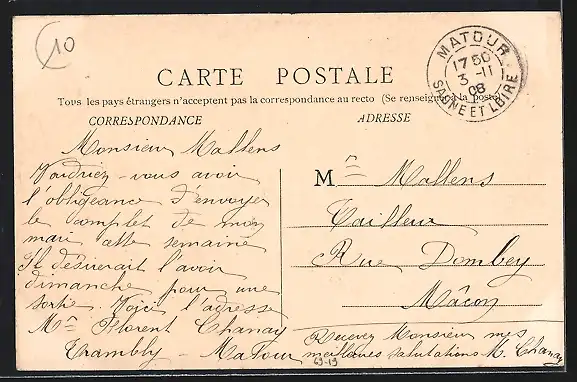 10
MATOUR
17 50
3 -11
08
SAONE ET LOIRE
CARTE POSTALE
Tous les pays étrangers n'acceptent pas la correspondance au recto (Se renseigner à la poste)
CORRESPONDANCE
ADRESSE
Monsieur Mallens
Voudriez-vous avoir
l'obligeance d'envoyer
le complet de mon
mari cette semaine
Il désirerait l'avoir
dimanche pour une
sortie. Voici l'adresse
Mme Florent Chanay
Trambly - Matour
M me Mallens
Tailleur
Rue Dombey
Mâcon
Recevez Monsieur mes
meilleures salutations M. Chanay
69-19